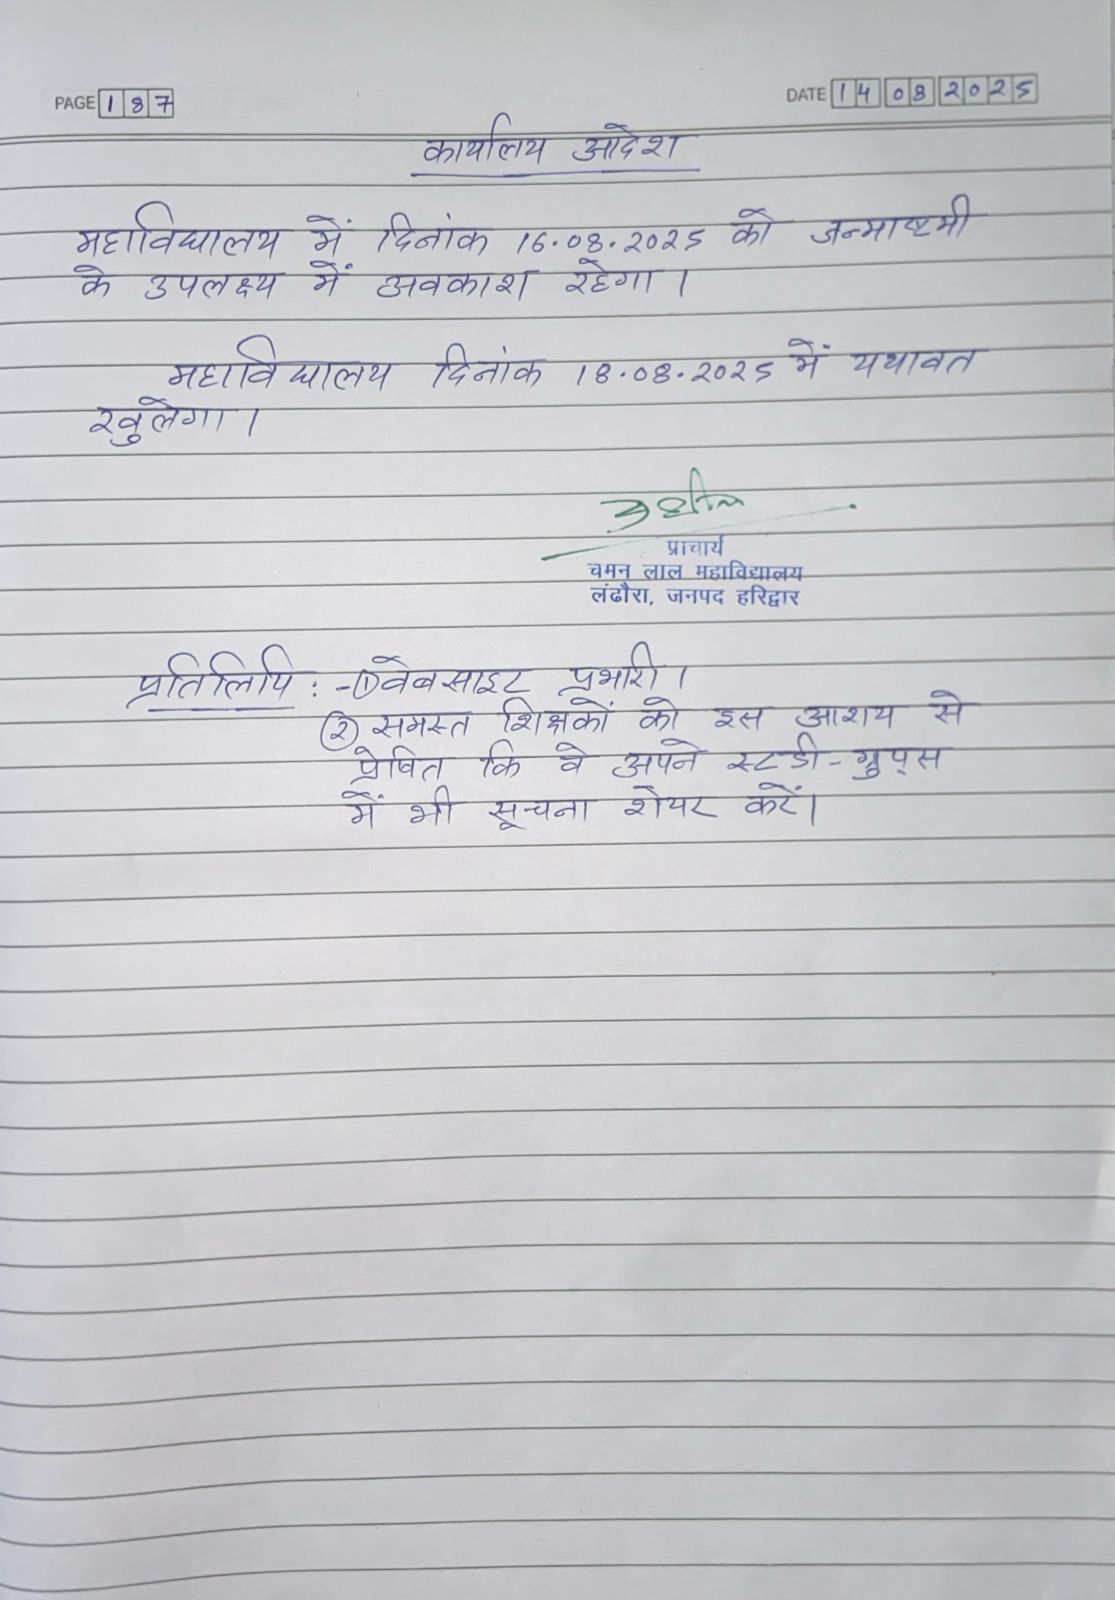 PAGE 187
DATE 14 08 2025
कार्यालय आदेश
महाविद्यालय में दिनांक 16.08.2025 को जन्माष्टमी
के उपलक्ष्य में अवकाश रहेगा।
महाविद्यालय दिनांक 18.08.2025 में यथावत
खुलेगा।
प्राचार्य
चमन लाल महाविद्यालय
लंढौरा, जनपद हरिद्वार
प्रतिलिपि :- ① वेबसाइट प्रभारी।
② समस्त शिक्षकों को इस आशय से
प्रेषित कि वे अपने स्टडी-ग्रुप्स
में भी सूचना शेयर करें।